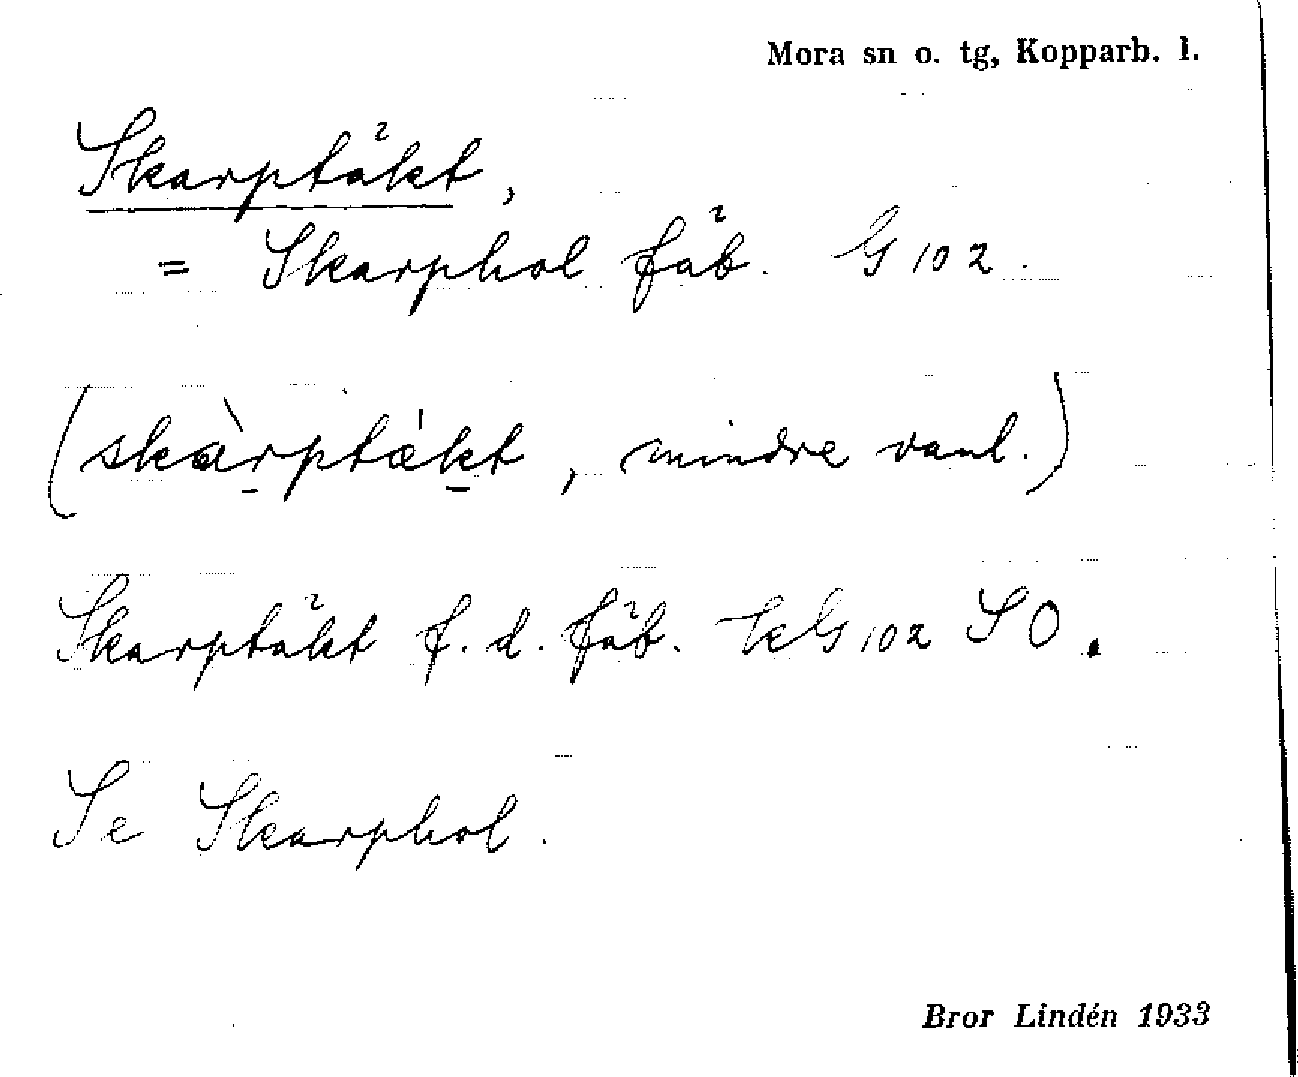 Mora sn o. tg, Kopparb. l.
Skarptäkt,
= Skarphol fäb. G 102.
(skàrptǽkt, mindre vanl.)
Skarptäkt f. d. fäb. kG 102 SO.
Se Skarphol.
Bror Lindén 1933